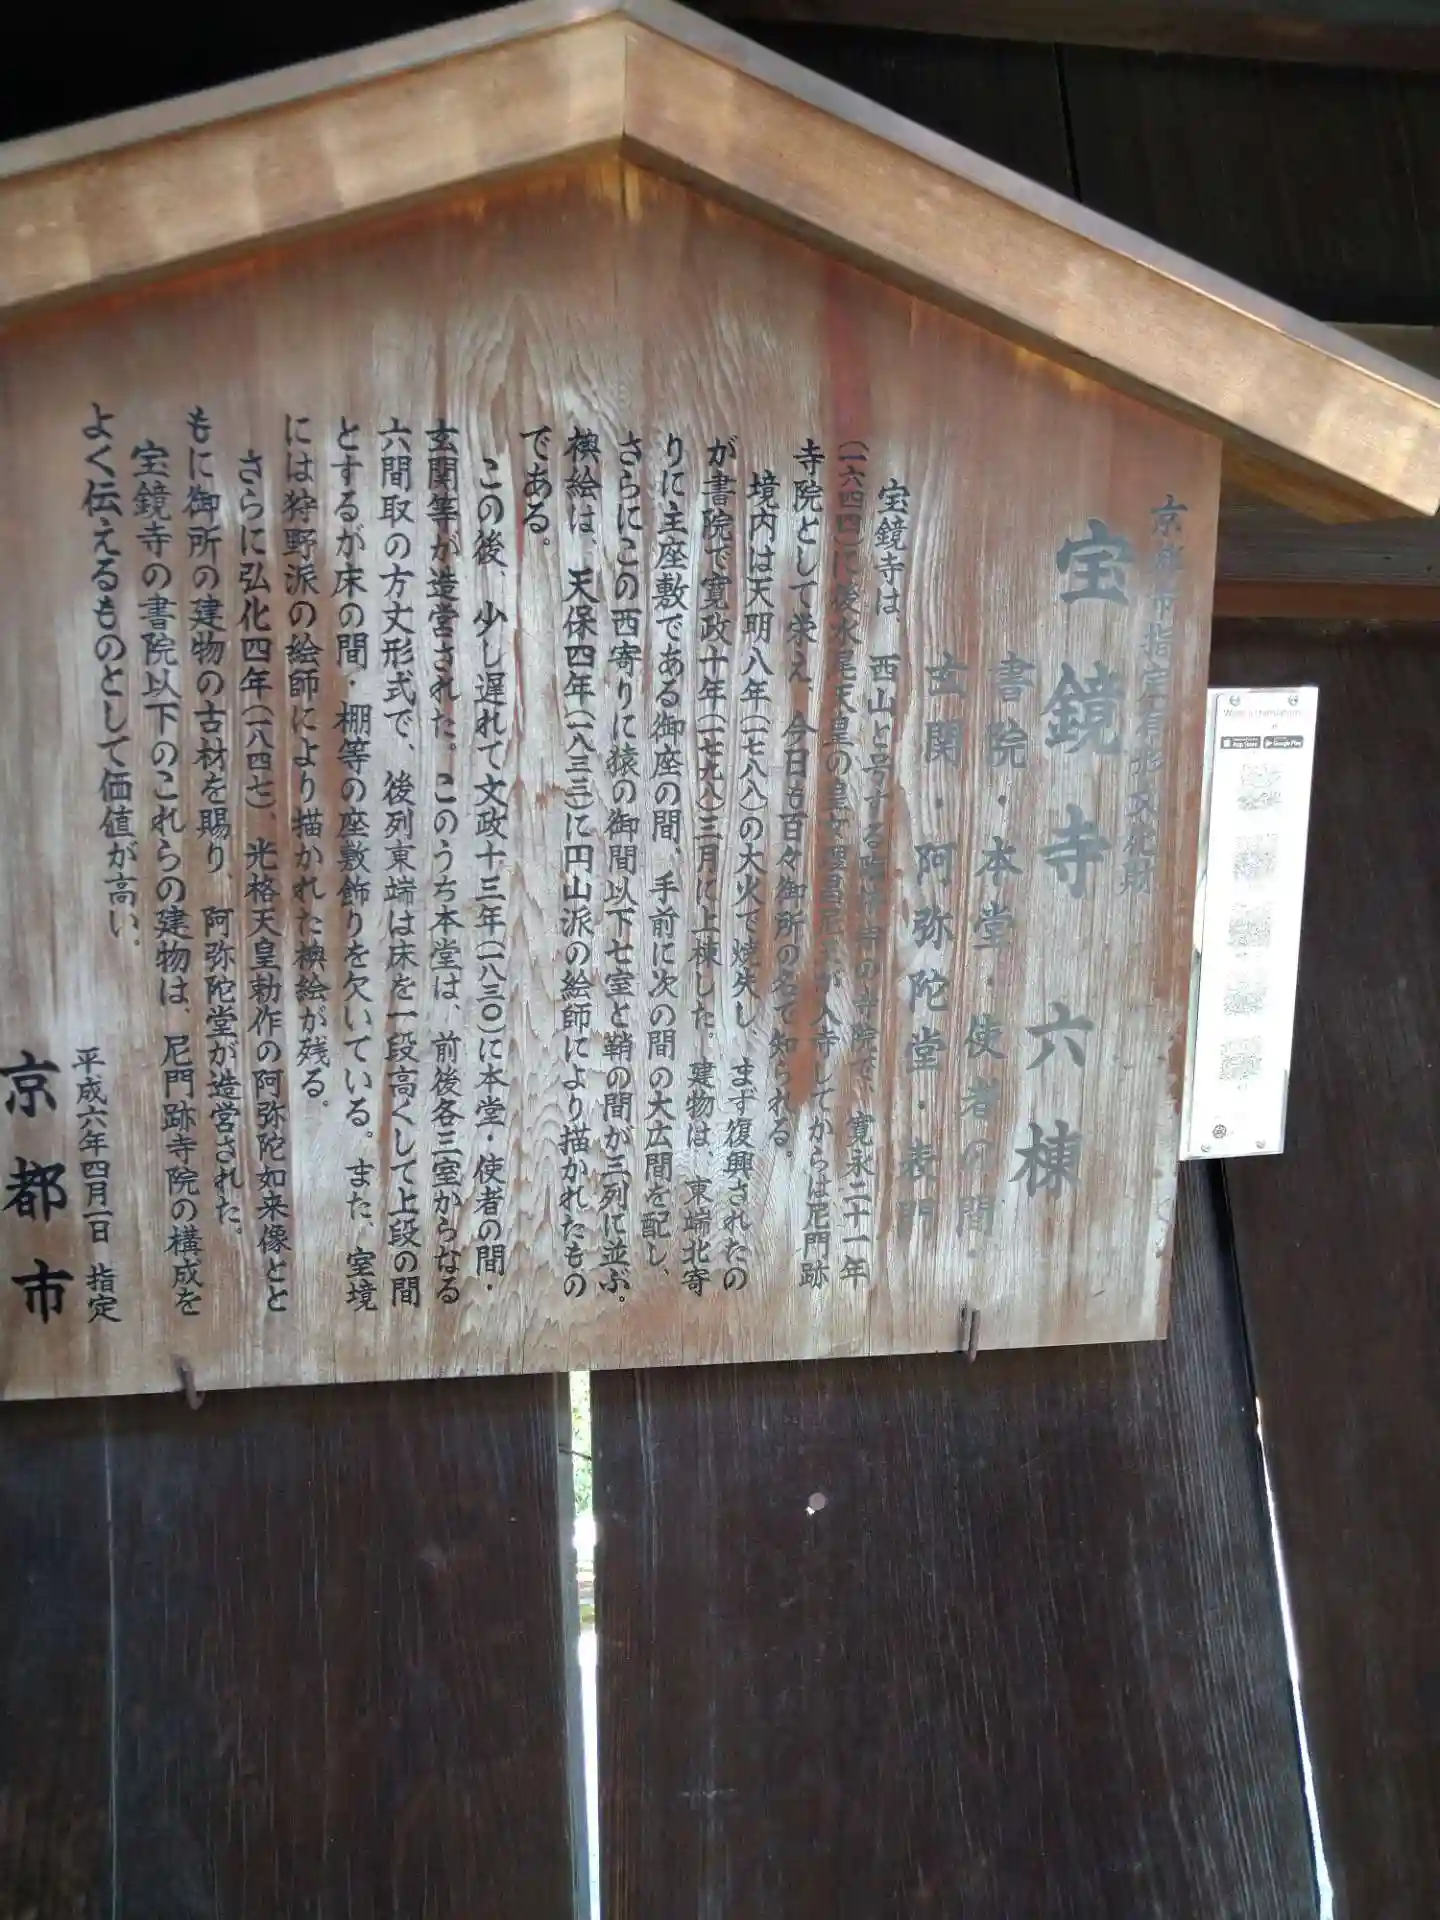 京都市指定有形文化財
宝鏡寺 六棟
書院・本堂・使者の間・
玄関・阿弥陀堂・表門
宝鏡寺は、西山と号する臨済宗の寺院で、寛永二十一年
(一六四四)に後水尾天皇の皇女理昌尼王が入寺してからは尼門跡
寺院として栄え、今日も百々御所の名で知られる。
境内は天明八年(一七八八)の大火で焼失し、まず復興されたの
が書院で寛政十年(一七九八)三月に上棟した。建物は、東端北寄
りに主座敷である御座の間、手前に次の間の大広間を配し、
さらにこの西寄りに猿の御間以下七室と鞘の間が三列に並ぶ。
襖絵は、天保四年(一八三三)に円山派の絵師により描かれたもの
である。
この後、少し遅れて文政十三年(一八三〇)に本堂・使者の間・
玄関等が造営された。このうち本堂は、前後各三室からなる
六間取の方丈形式で、後列東端は床を一段高くして上段の間
とするが床の間・棚等の座敷飾りを欠いている。また、室境
には狩野派の絵師により描かれた襖絵が残る。
さらに弘化四年(一八四七)、光格天皇勅作の阿弥陀如来像とと
もに御所の建物の古材を賜り、阿弥陀堂が造営された。
宝鏡寺の書院以下のこれらの建物は、尼門跡寺院の構成を
よく伝えるものとして価値が高い。
平成六年四月一日 指定
京都市
App Store
Google Play